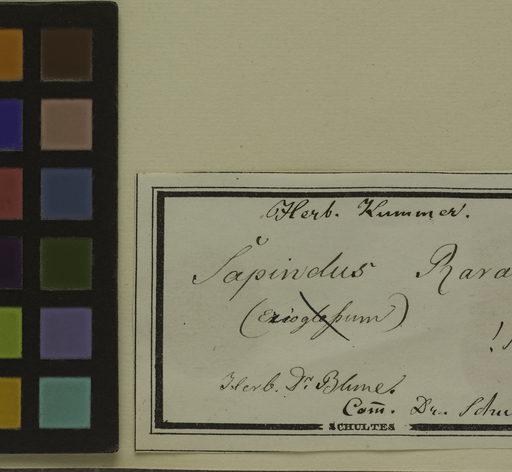 Herb. Kummer.
Sapindus Rara
(Erioglossum)
!
Herb. Dr. Blume.
Com̅. Dr. Schu
SCHULTES